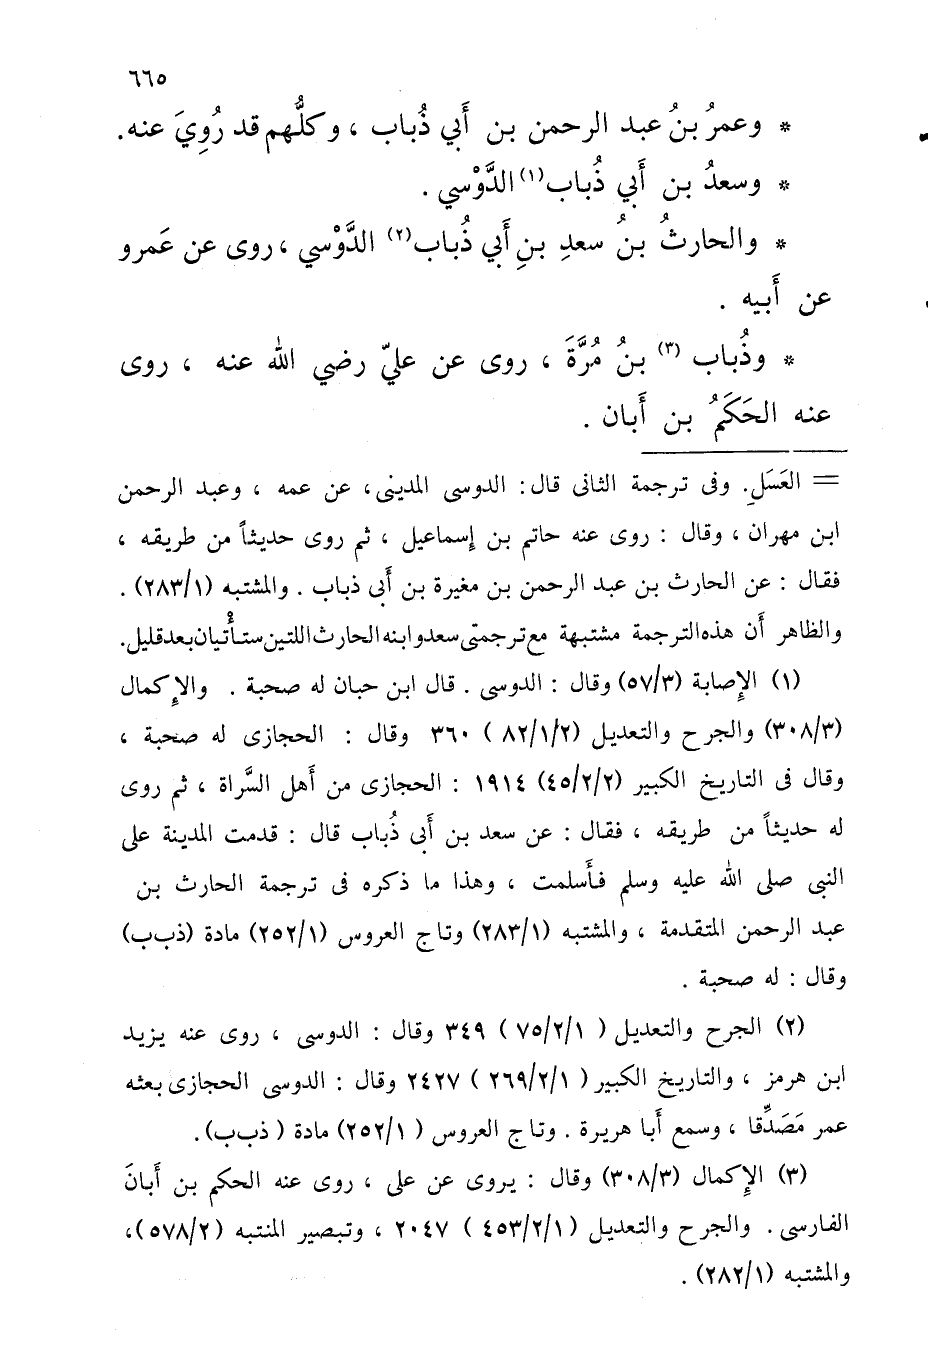 ٦٦٥
* وعمرُ بنُ عبد الرحمن بن أَبي ذُباب ، وكلُّهم قد رُوِيَ عنه.
* وسعدُ بن أَبي ذُباب(١) الدَّوْسي .
* والحارثُ بنُ سعدِ بنِ أَبي ذُباب(٢) الدَّوْسي ، روى عن عَمرو
عن أَبيه .
* وذُباب (٣) بنُ مُرَّةَ ، روى عن عليّ رضي الله عنه ، روى
عنه الحَكَمُ بن أَبان .
= العَسَلِ. وفى ترجمة الثانى قال: الدوسى المدينى، عن عمه ، وعبد الرحمن
ابن مهران ، وقال : روى عنه حاتم بن إسماعيل ، ثم روى حديثاً من طريقه ،
فقال : عن الحارث بن عبد الرحمن بن مغيرة بن أَبى ذباب . والمشتبه (٢٨٣/١) .
والظاهر أَن هذه الترجمة مشتبهة مع ترجمتى سعد وابنه الحارث اللتين ستأْتيان بعد قليل.
(١) الإِصابة (٥٧/٣) وقال : الدوسى . قال ابن حبان له صحبة . والإِكمال
(٣٠٨/٣) والجرح والتعديل (٨٢/١/٢ ) ٣٦٠ وقال : الحجازى له صحبة ،
وقال فى التاريخ الكبير (٤٥/٢/٢) ١٩١٤ : الحجازى من أَهل السَّراة ، ثم روى
له حديثاً من طريقه ، فقال : عن سعد بن أَبى ذُباب قال : قدمت المدينة على
النبى صلى الله عليه وسلم فأَسلمت ، وهذا ما ذكره فى ترجمة الحارث بن
عبد الرحمن المتقدمة ، والمشتبه (٢٨٣/١) وتاج العروس (٢٥٢/١) مادة (ذب‌ب)
وقال : له صحبة .
(٢) الجرح والتعديل ( ٧٥/٢/١ ) ٣٤٩ وقال : الدوسى ، روى عنه يزيد
ابن هرمز ، والتاريخ الكبير ( ٢٦٩/٢/١ ) ٢٤٢٧ وقال : الدوسى الحجازى بعثه
عمر مَصَدِّقا ، وسمع أَبا هريرة . وتاج العروس ( ٢٥٢/١) مادة ( ذب‌ب).
(٣) الإِكمال (٣٠٨/٣) وقال : يروى عن على ، روى عنه الحكم بن أَبانَ
الفارسى . والجرح والتعديل (٤٥٣/٢/١ ) ٢٠٤٧ ، وتبصير المنتبه (٥٧٨/٢)،
والمشتبه (٢٨٢/١) .